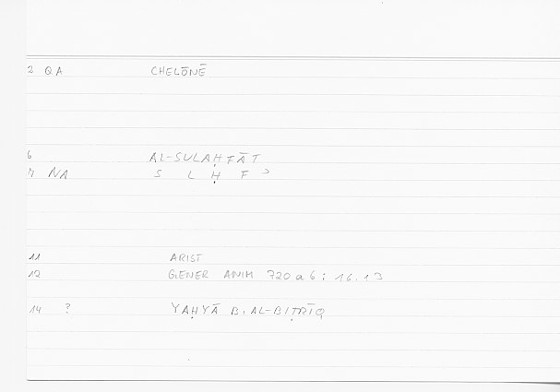 2 QA CHELŌNĒ
6 AL-SULAḤFĀT
7 NA S L Ḥ F ɔ
11 ARIST
12 GENER ANIM 720 a 6 : 16.13
14 ? YAḤYĀ B. AL-BIṬRĪQ